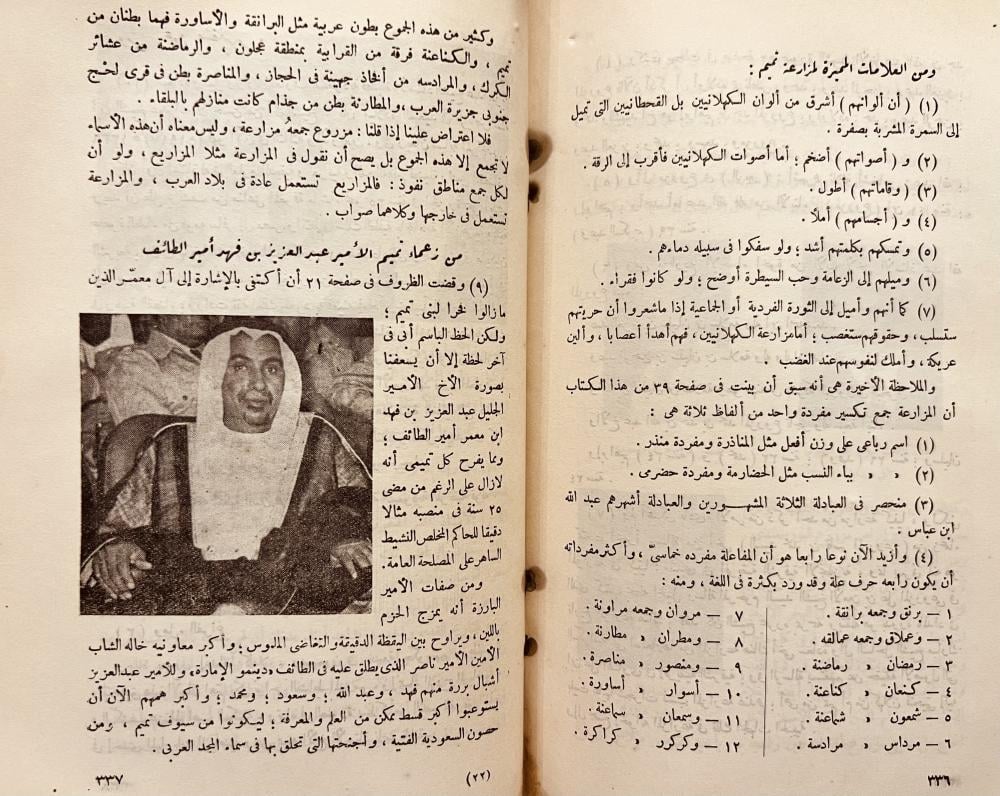 ومن العلامات المميزة لمزارعة تميم :
(١) ( أن ألوانهم ) أشرق من ألوان الكهلانيين بل القحطانيين التى تميل
إلى السمرة المشربة بصفرة .
(٢) و ( أصواتهم ) أضخم ؛ أما أصوات الكهلانيين فأقرب إلى الرقة .
(٣) ( وقاماتهم ) أطول .
(٤) ( و أجسامهم ) أملأ .
(٥) وتمسكهم بكلمتهم أشد ؛ ولو سفكوا فى سبيله دماءهم .
(٦) وميلهم إلى الزعامة وحب السيطرة أوضح ؛ ولو كانوا فقراء .
(٧) كما أنهم وأميل إلى الثورة الفردية أو الجماعية إذا ماشعروا أن حريتهم
ستسلب ، وحقوقهم ستغصب ؛ أما مزارعة الكهلانيين ، فهم أهدأ أعصابا ، وألين
عريكة ، وأملك لنفوسهم عند الغضب .
والملاحظة الأخيرة هى أنه سبق أن بينت فى صفحة ٣٩ من هذا الكتاب
أن المزارعة جمع تكسير مفردة واحد من ألفاظ ثلاثة هى :
(١) اسم رباعى على وزن أفعل مثل المناذرة ومفردة منذر .
(٢) » » بياء النسب مثل الحضارمة ومفردة حضرمى .
(٣) منحصر فى العبادلة الثلاثة المشهورين والعبادلة أشهرهم عبد الله
ابن عباس .
(٤) وأزيد الآن نوعا رابعا هو أن المفاعلة مفرده خماسىّ ، وأكثر مفرداته
أن يكون رابعه حرف علة وقد ورد بكثرة فى اللغة ، ومنه :
١ — برنق وجمعه برانقة .
٢ — وعملاق وجمعه عمالقه .
٣ — رمضان » رماضنة .
٤ — كنعان » كناعنة .
٥ — شمعون » شماعنة .
٦ — مرداس » مرادسة .
٧ — مروان وجمعه مراونة .
٨ — ومطران » مطارنة .
٩ — ومنصور » مناصرة .
١٠ — أسوار » أساورة .
١١ — وسمعان » سماعنة .
١٢ — وكركرر » كراكرة .
٣٣٦
وكثير من هذه الجموع بطون عربية مثل البرانقة والأساورة فهما بطنان من
تميم ، والكناعنة فرقة من القرابية بمنطقة عجلون ، والرماضنة من عشائر
الكرك ، والمرادسه من أفخاذ جهينة فى الحجاز ، والمناصرة بطن فى قرى لحْج
جنوبى جزيرة العرب ، والمطارنة بطن من جذام كانت منازلهم بالبلقاء .
فلا اعتراض علينا إذا قلنا : مزروع جمعهُ مزارعة ، وليس معناه أن هذه الأسماء
لا تجمع إلا هذه الجموع بل يصح أن نقول فى المزارعة مثلا المزاريع ، ولو أن
لكل جمع مناطق نفوذ : فالمزاريع تستعمل عادة فى بلاد العرب ، والمزارعة
تستعمل فى خارجها وكلاهما صواب .
من زعماء تميم الأمير عبد العزيز بن فهد أمير الطائف
(٩) وقضت الظروف فى صفحة ٢١ أن أكتفى بالإشارة إلى آل معمّر الذين
مازالوا فخرا لبنى تميم ؛
ولكن الحظ الباسم أتى فى
آخر لحظة إلا أن يسعفنا
بصورة الأخ الأمير
الجليل عبد العزيز بن فهد
ابن معمر أمير الطائف ؛
ومما يفرح كل تميمى أنه
لازال على الرغم من مضى
٢٥ سنة فى منصبه مثالا
دقيقا للحاكم المخلص النشيط
الساهر على المصلحة العامة .
ومن صفات الأمير
البارزة أنه يمزج الحزم
باللين ، ويراوح بين اليقظة الدقيقة والتغاضى الملموس ؛ وأكبر معاونيه خاله الشاب
الأمين الأمير ناصر الذى يطلق عليه فى الطائف « دينمو الإمارة » وللأمير عبد العزيز
أشبال بررة منهم فهد ، وعبد الله ؛ وسعود ؛ ومحمد ؛ وأكبر همهم الآن أن
يستوعبوا أكبر قسط ممكن من العلم والمعرفة ؛ ليكونوا من سيوف تميم ، ومن
حصون السعودية الفتية ، وأجنحتها التى تحلق بها فى سماء المجد العربى .
(٢٢)
٣٣٧